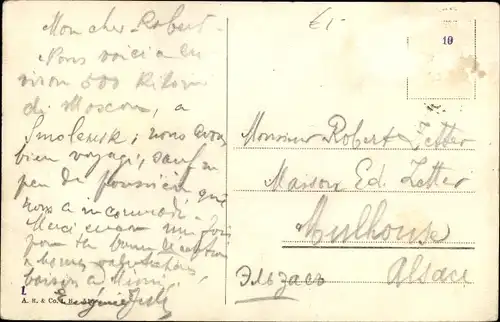 Mon cher Robert -
Nous voici a en
viron 500 Kilom
de Moscou, a
Smolensk; nous avons
bien voyagé, sauf un
peu de poussière qui
nous a incommodé -
Merci encore une fois
pour ta bonne
baisers a Mimi,
I.
A. H. & Co.
£1-
10
Monsieur Robert Zetter
Maison Ed. Zetter
Mulhouse
Эльзасъ Alsace